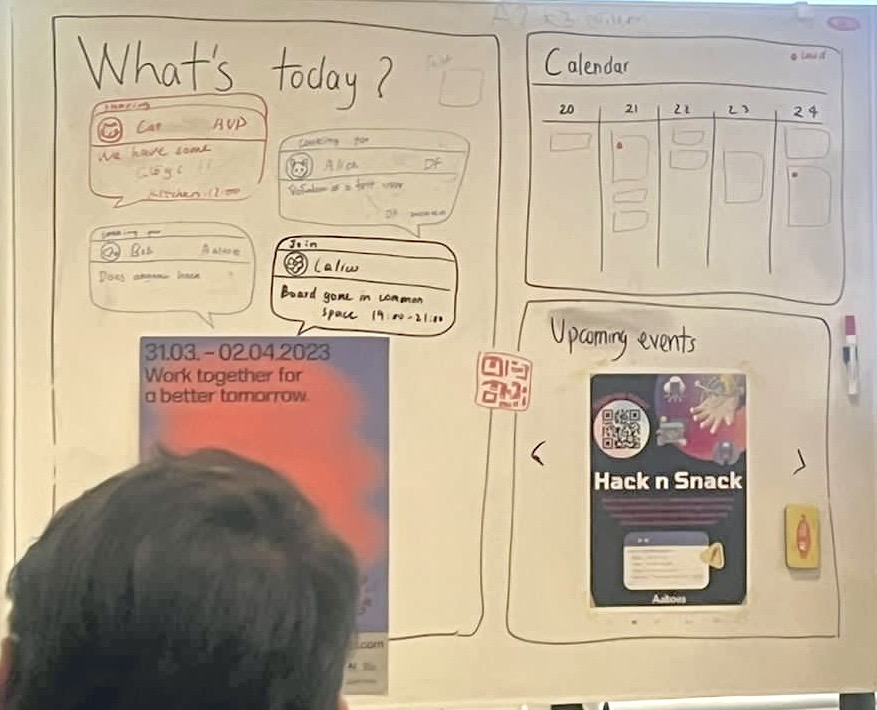 What's today?
Sharing
Eat AVP
We have some
Kitchen 12:00
Looking for
Alice DF
Looking for
Bob Aaltoes
Does anyone have
Join
Board game in common
space 19:00-21:00
31.03. – 02.04.2023
Work together for
a better tomorrow.
.com
Calendar
20 21 22 23 24
Upcoming events
< >
Hack n Snack
Aaltoes